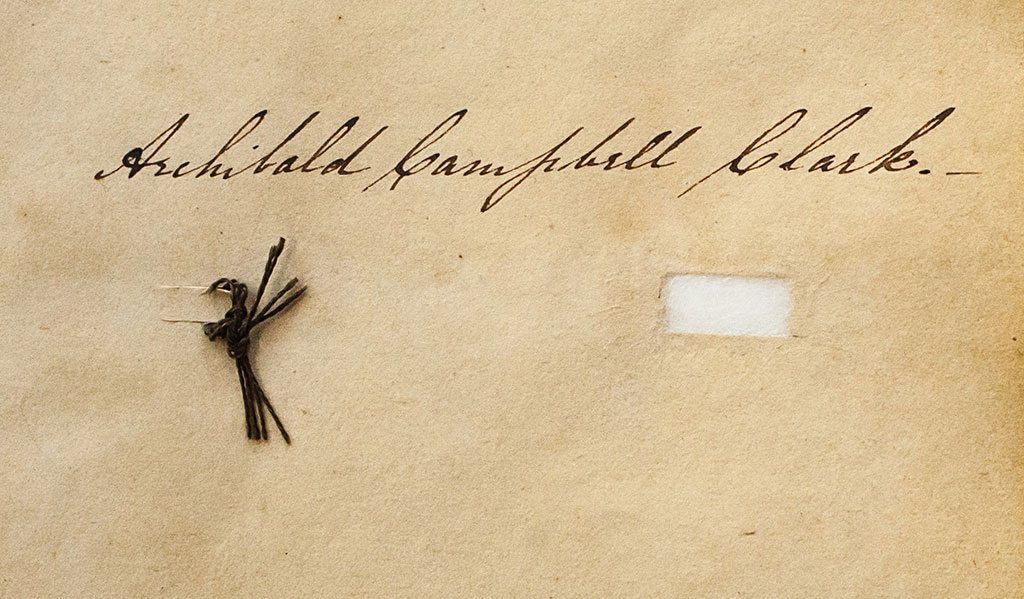 Archibald Campbell Clark.—